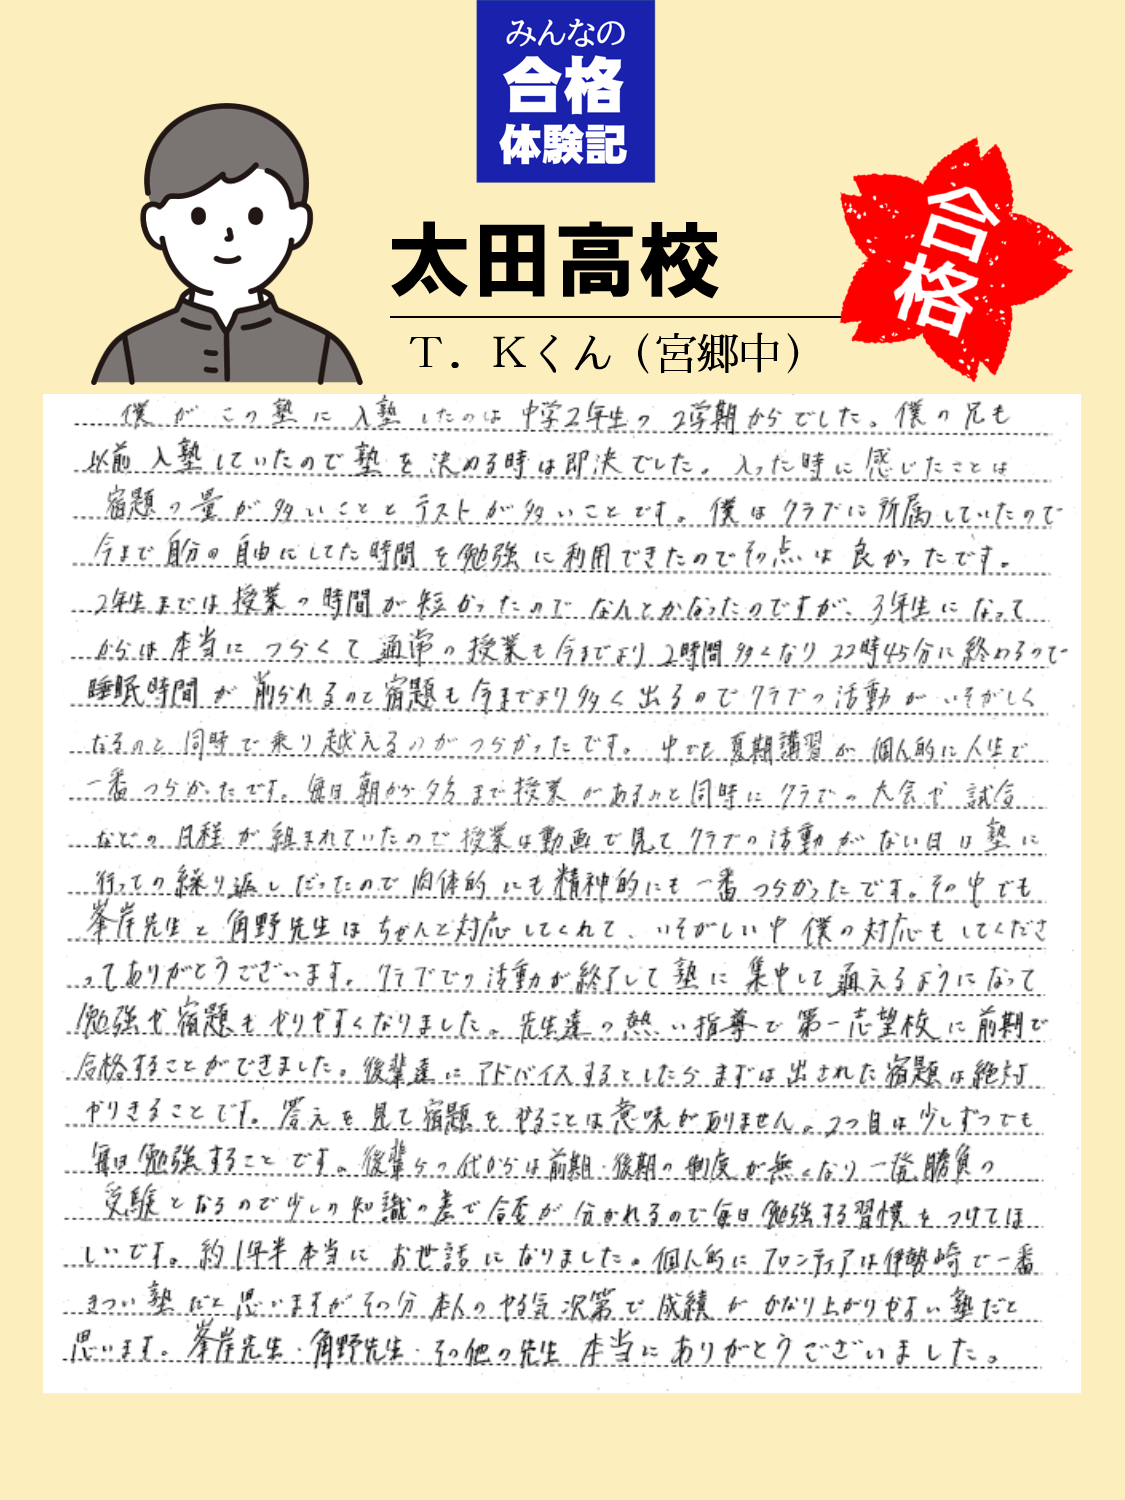 みんなの
合格
体験記
合格
太田高校
T．Kくん（宮郷中）
僕がこの塾に入塾したのは中学2年生の2学期からでした。僕の兄も
以前入塾していたので塾を決める時は即決でした。入った時に感じたことは
宿題の量が多いこととテストが多いことです。僕はクラブに所属していたので
今まで自分の自由にしてた時間を勉強に利用できたのでその点は良かったです。
2年生までは授業の時間が短かったのでなんとかなったのですが、3年生になって
からは本当につらくて通常の授業も今までより2時間多くなり22時45分に終わるので
睡眠時間が削られるのと宿題も今までより多く出るのでクラブの活動がいそがしく
なるのと同時で乗り越えるのがつらかったです。中でも夏期講習が個人的に人生で
一番つらかったです。毎日朝から夕方まで授業があるのと同時にクラブの大会や試合
などの日程が組まれていたので授業は動画で見てクラブの活動がない日は塾に
行っての繰り返しだったので肉体的にも精神的にも一番つらかったです。その中でも
峯岸先生と角野先生はちゃんと対応してくれて、いそがしい中僕の対応もしてくださ
ってありがとうございます。クラブでの活動が終了して塾に集中して通えるようになって
勉強や宿題もやりやすくなりました。先生達の熱い指導で第一志望校に前期で
合格することができました。後輩達にアドバイスするとしたらまずは出された宿題は絶対
やりきることです。答えを見て宿題をやることは意味がありません。2つ目は少しずつでも
毎日勉強することです。後輩らの代からは前期・後期の制度が無くなり一発勝負の
受験となるので少しの知識の差で合否が分かれるので毎日勉強する習慣をつけてほ
しいです。約1年半本当にお世話になりました。個人的にフロンティアは伊勢崎で一番
きつい塾だと思いますがその分本人のやる気次第で成績がかなり上がりやすい塾だと
思います。峯岸先生・角野先生・その他の先生本当にありがとうございました。